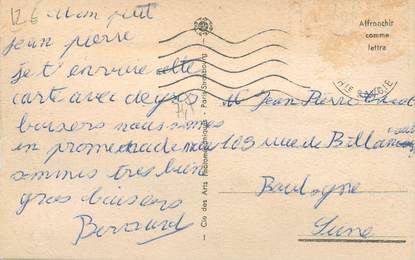 12 €
Mon petit
jean pierre
je t'envoie cette
carte avec de gros
baisers nous sommes
en promenade nous
sommes tres bien
gros baisers
Bernard
Cie des Arts Photomécaniques - Paris-Strasbourg
Affranchir
comme
lettre
HTE SAVOIE
Mr Jean Pierre
109 rue de Billancourt
Boulogne
Seine